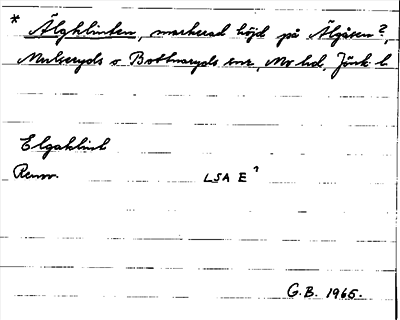 * Älgklinten, markerad höjd på Älgåsen?,
Mulseryds o Bottnaryds snr, Mo hd, Jönk. l.
Elgaklint
Renv. LSA E?
G.B. 1965.